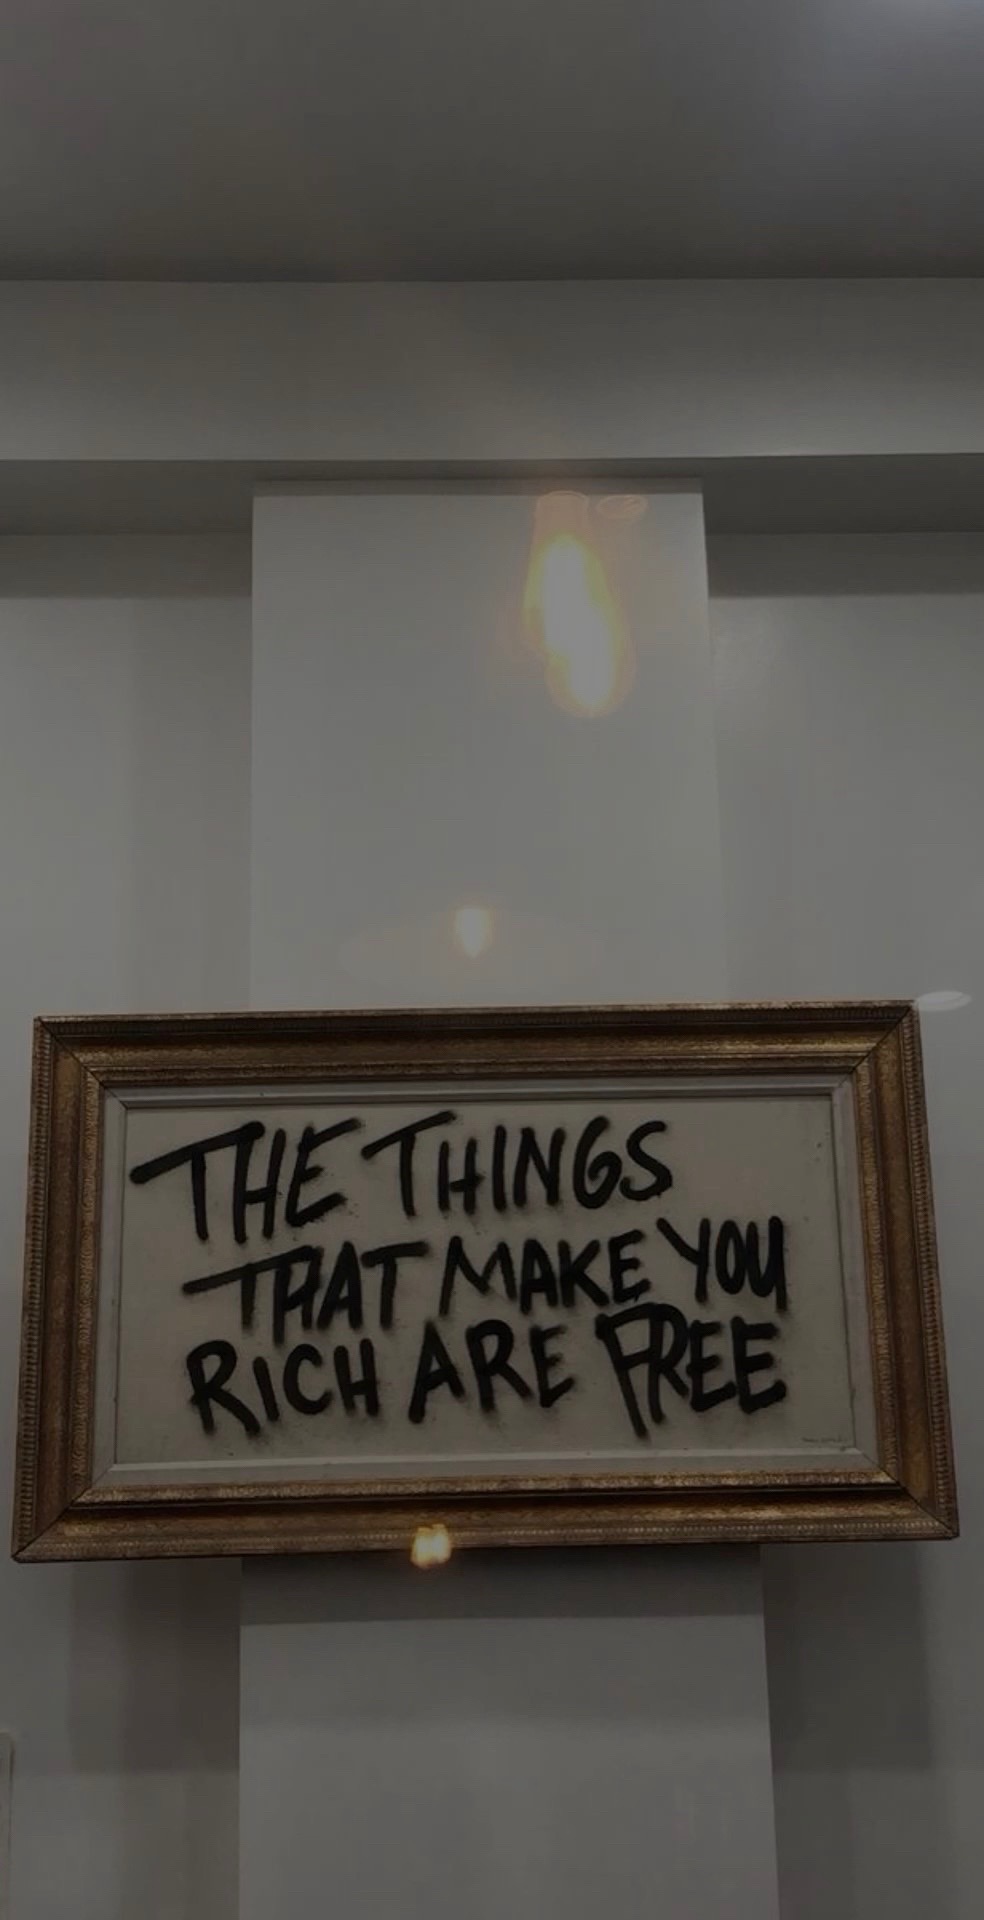 THE THINGS
THAT MAKE YOU
RICH ARE FREE